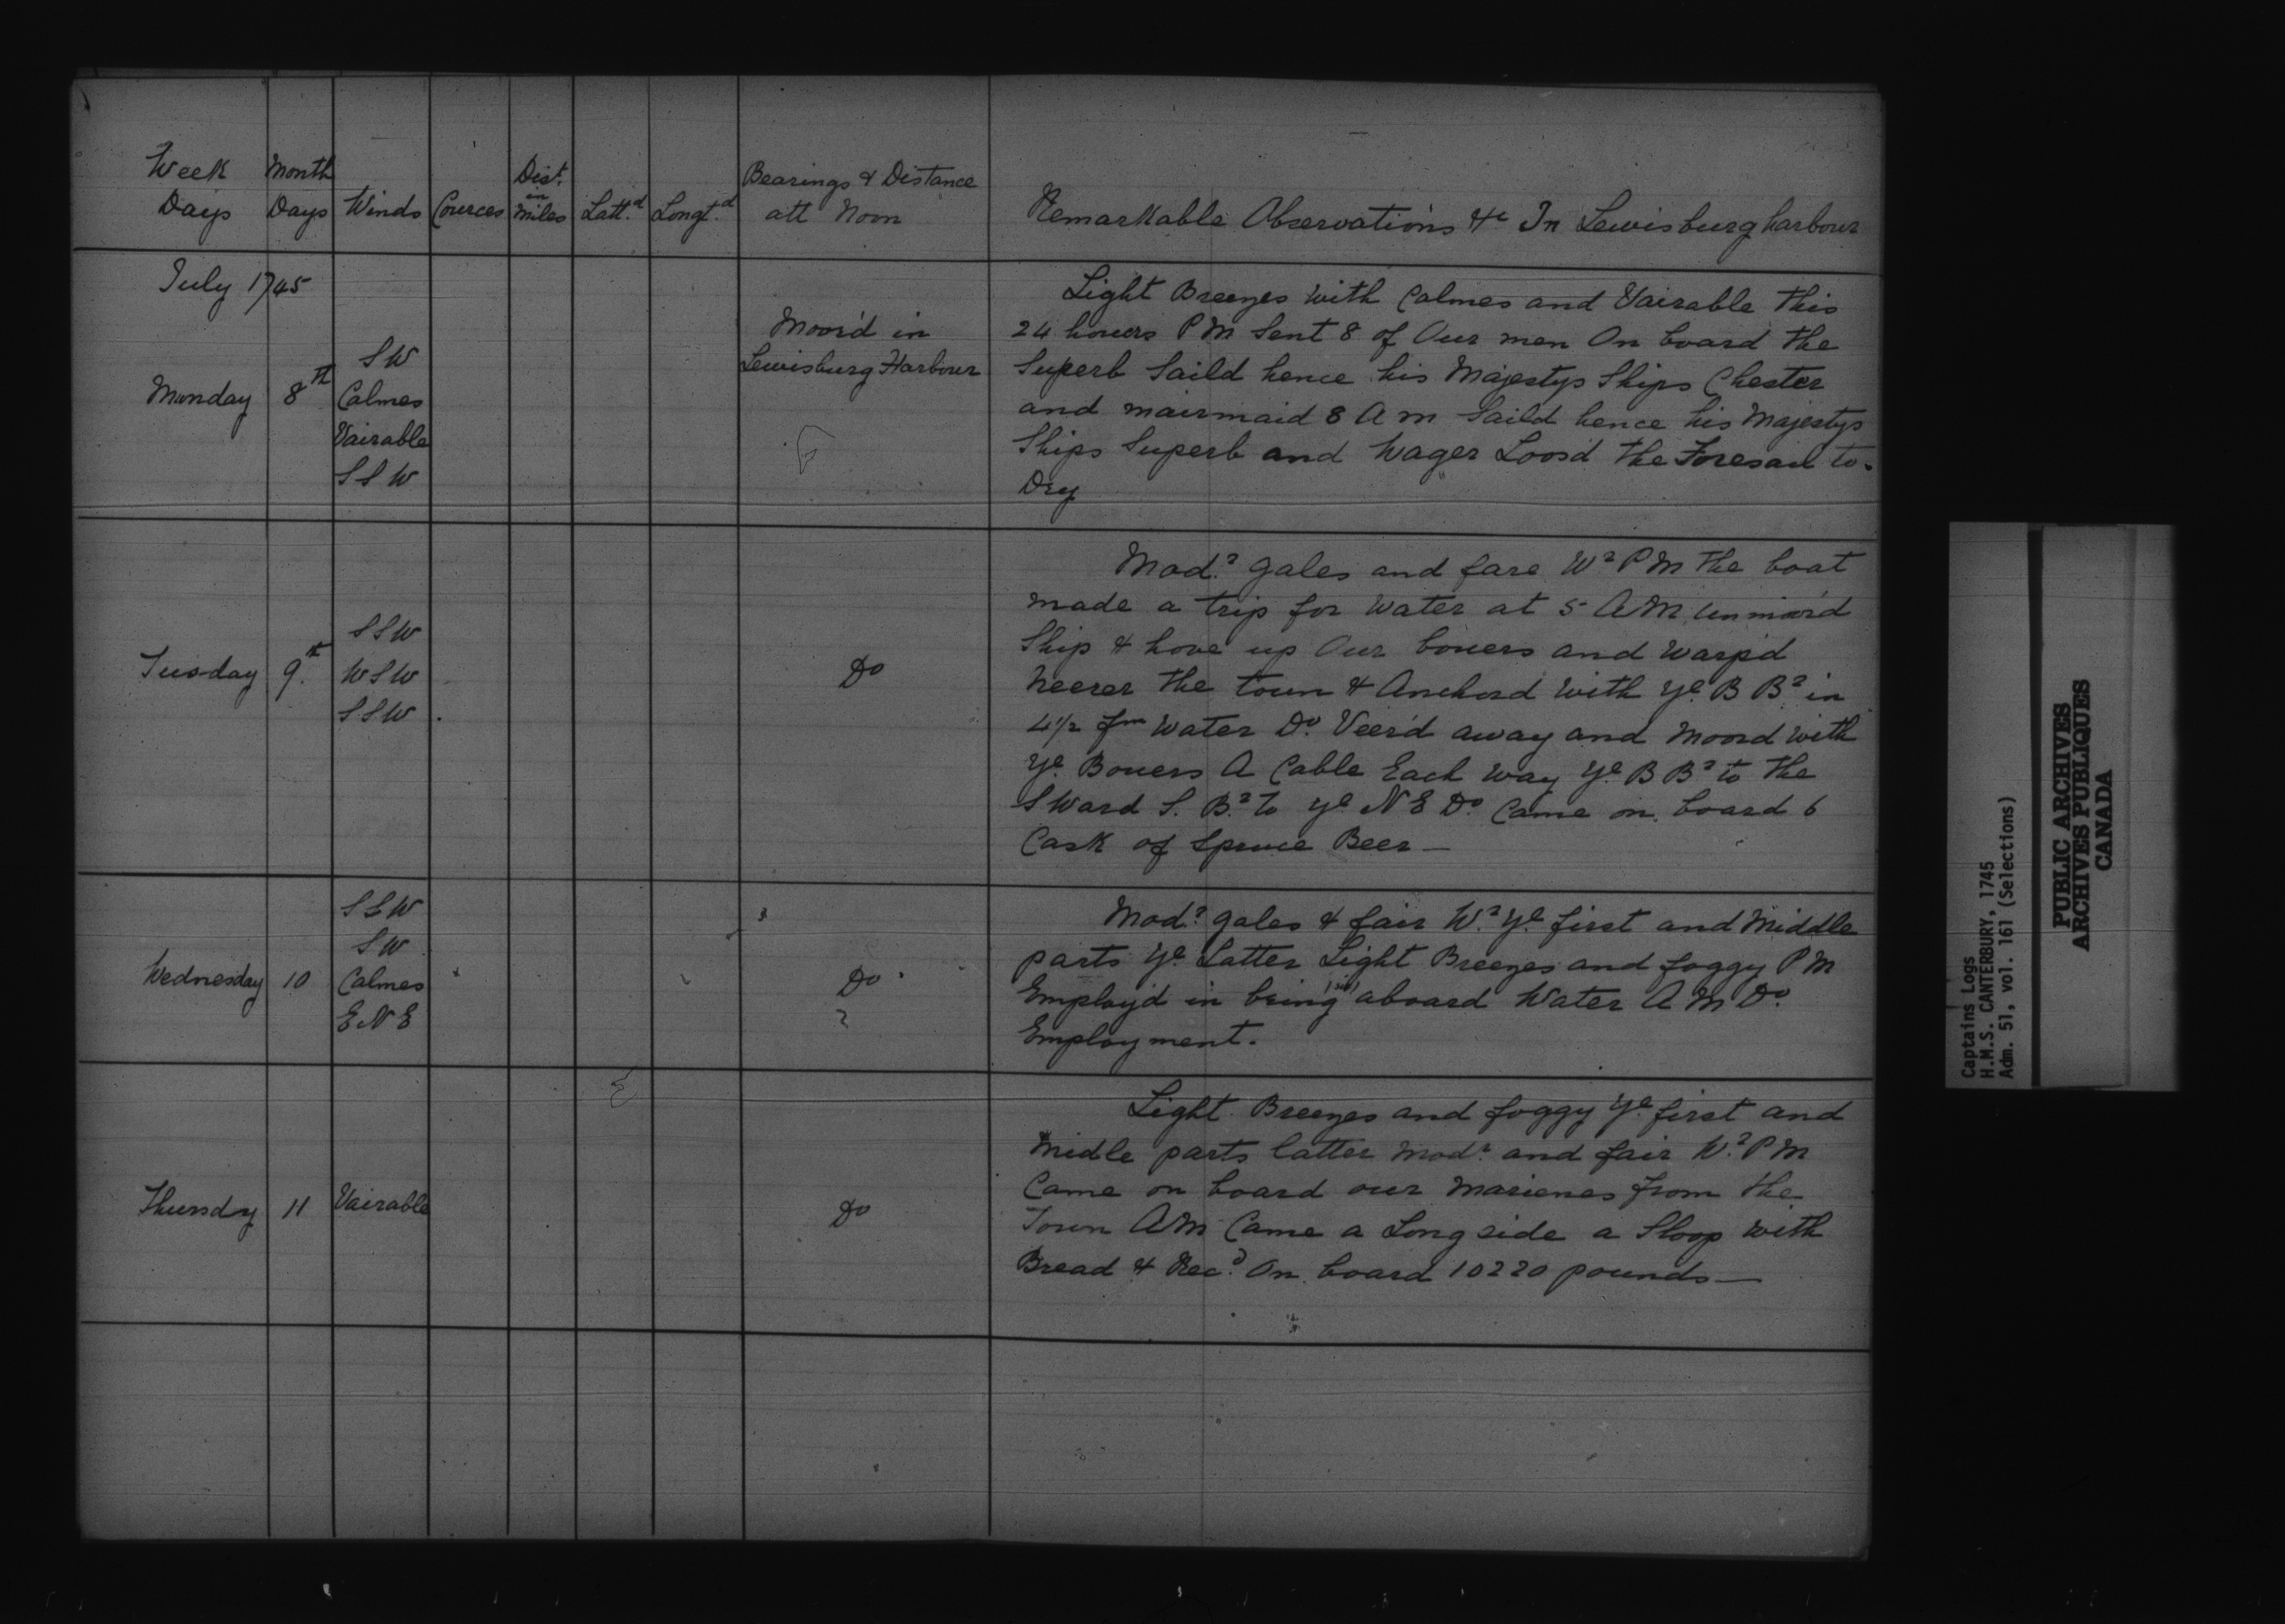 Week Days	Month Days	Winds	Cources	Dist. in Miles	Latt.d	Longt.d	Bearings & Distance att Noon	Remarkable Observations &c In Lewisburg harbour
July 1745
Monday	8th	SW
Calmes
Vairable
SSW
Moor'd in
Lewisburg Harbour
Light Breezes with Calmes and Vairable this
24 houers PM Sent 8 of Our men On board the
Superb Saild hence his Majestys Ships Chester
and mairmaid 8 Am Saild hence his Majestys
Ships Superb and Wager Loos'd the Foresail to
Dry
Tusday	9th	SSW
WSW
SSW
Do
Mod.r gales and fare Wr PM the boat
made a trip for Water at 5 AM unmoor'd
Ship & hove up Our bouers and Warp'd
Neerer the town & Anchord with ye B Br in
4 1/2 fm Water Do. Veer'd away and Moord with
ye Bouers A Cable Each Way ye B Br to the
SWard S. Br to ye NE Do Came on board 6
Cask of Spruce Beer —
Wednesday	10	SSW
SW
Calmes
ENE
Do
Mod.r gales & fair W.r ye first and Middle
parts ye Latter Light Breezes and foggy PM
Employ'd in being (sic) aboard Water AM Do.
Employment.
Thursdy	11	Vairable	Do
Light Breezes and foggy ye first and
Midle parts latter Modr and fair W.r PM
Came on board our Marienes from the
Town AM Came a Longside a Sloop with
Bread & Rec.d On board 10220 pounds —
Captains Logs
H.M.S. CANTERBURY, 1745
Adm. 51, vol. 161 (Selections)
PUBLIC ARCHIVES
ARCHIVES PUBLIQUES
CANADA